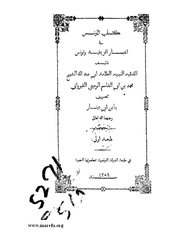 كتاب المؤنس
في
اخبار افريقية وتونس
تاليف
الفقيه النبيه العلامة ابي عبد الله الشيخ
محمد بن ابي القاسم الرعيني القيرواني
المعروف
بابن ابي دينار
رحمه الله تعالى
طبعة اولى
بمطبعة الدولة التونسية بحاضرتها المحمية
١٢٨٦
www.marefa.org